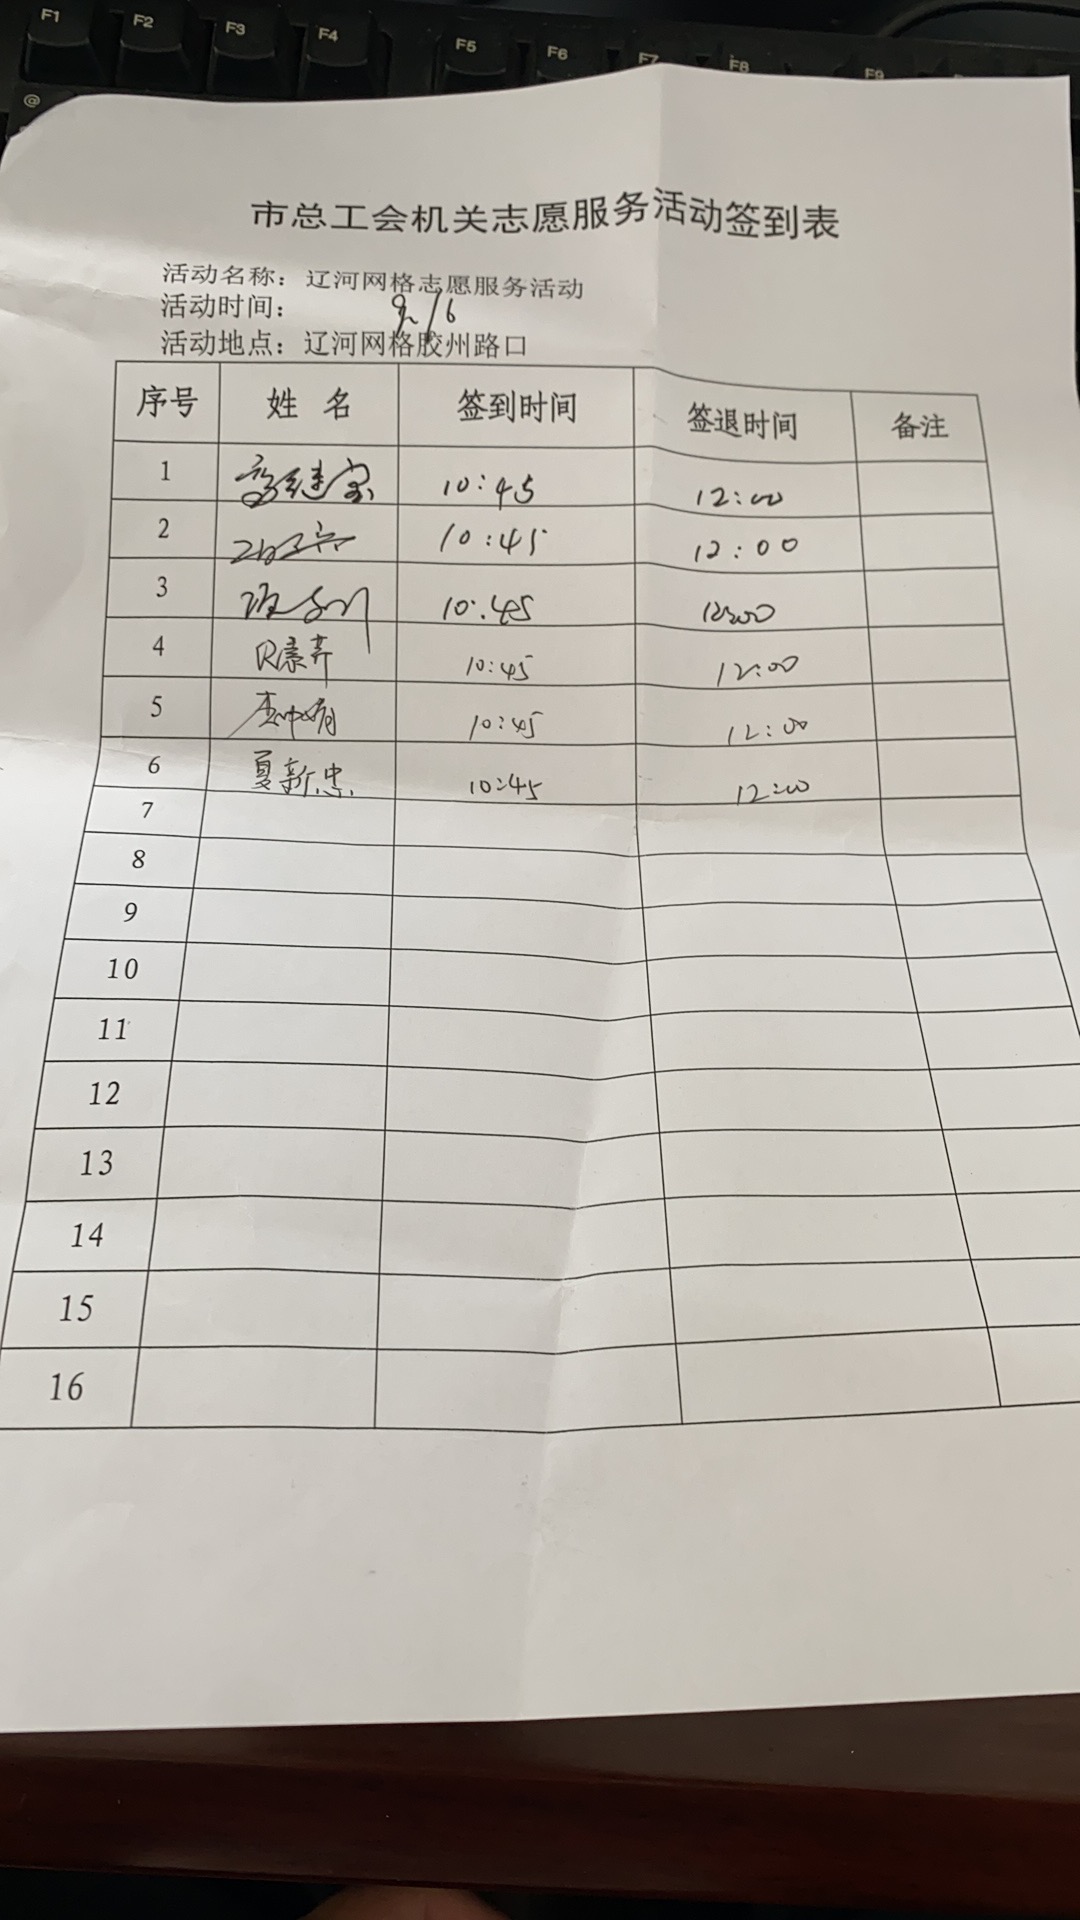 F1 F2 F3 F4 F5 F6 F7 F8 F9
@
市总工会机关志愿服务活动签到表
活动名称：辽河网格志愿服务活动
活动时间：
活动地点：辽河网格胶州路口
序号 姓名 签到时间 签退时间 备注
1 10:45 12:00
2 10:45 12:00
3 10:45 12:00
4 10:45 12:00
5 10:45 12:00
6 夏新忠 10:45 12:00
7
8
9
10
11
12
13
14
15
16